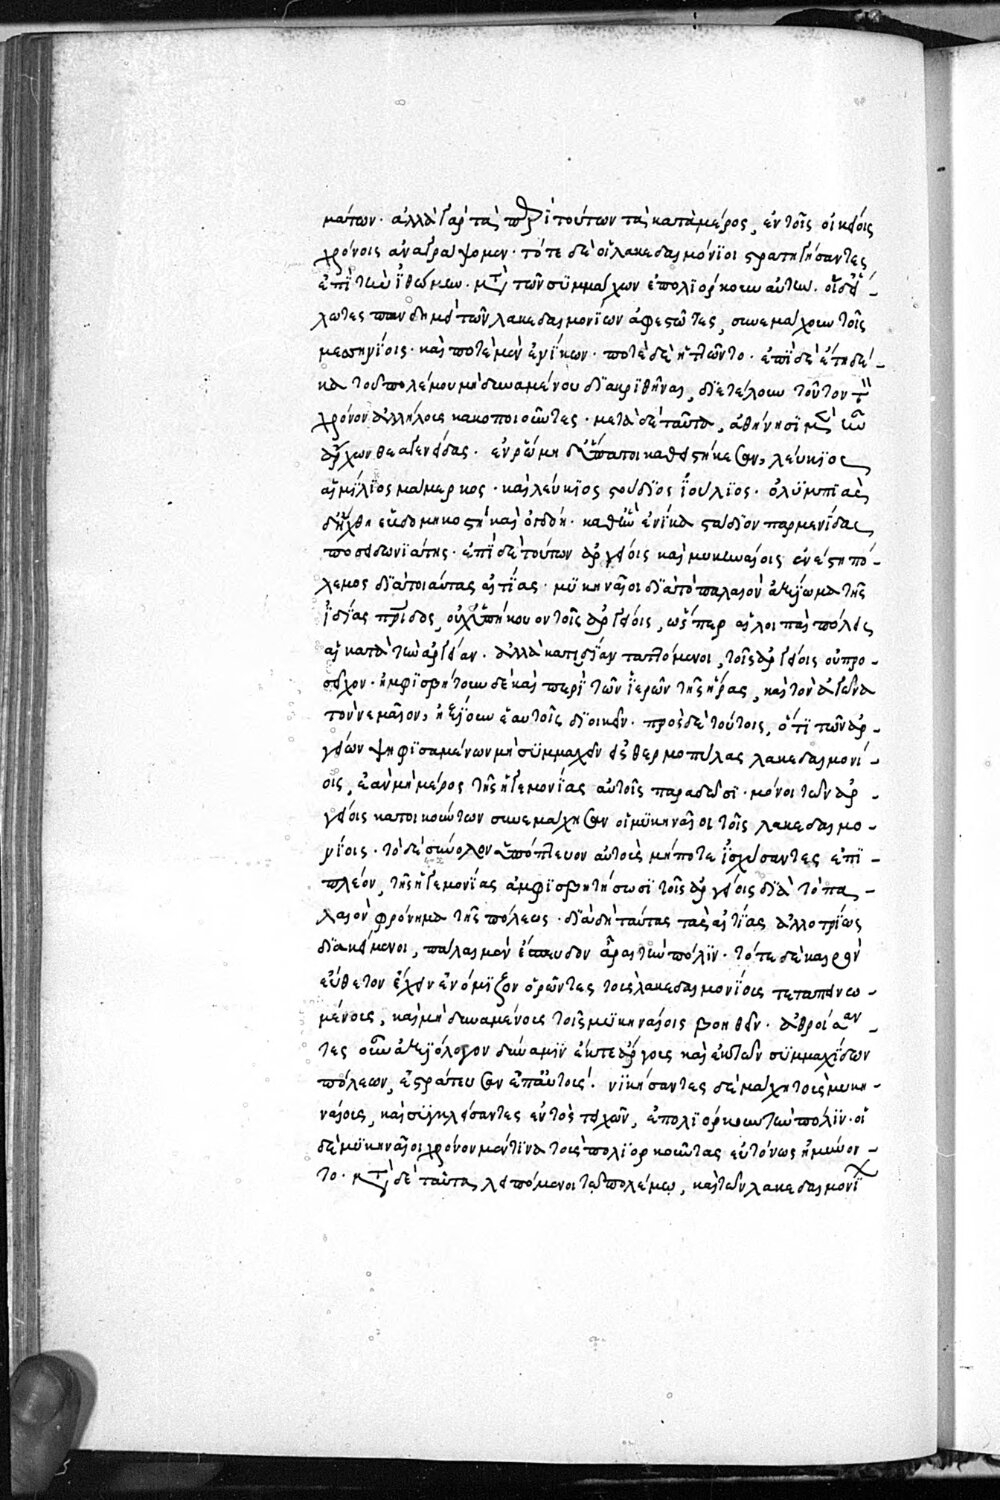 μάτων· ἀλλὰ γὰρ τὰ περὶ τούτων τὰ κατὰ μέρος, ἐν τοῖς οἰκείοις
χρόνοις ἀναγράψομεν· τότε δὲ οἱ λακεδαιμόνιοι στρατηγήσαντες
ἐπὶ τὴν ἰθώμην· μετὰ τῶν συμμάχων ἐπολιόρκουν αὐτήν. οἱ δὲ εἵ-
λωτες πανδημεὶ τῶν λακεδαιμονίων ἀφεστῶτες, συνεμάχουν τοῖς
μεσηνίοις· καὶ ποτὲ μὲν ἐνίκων· ποτὲ δὲ ἡττῶντο· ἐπὶ δὲ ἔτη δέ-
κα τοῦ πολέμου μὴ δυναμένου διακριθῆναι, διετέλουν τοῦτον τὸν
χρόνον ἀλλήλους κακοποιοῦντες· μετὰ δὲ ταῦτα, ἀθήνησι μὲν ἦν
ἄρχων θεαγενείδας· ἐν ῥώμῃ δὲ ὕπατοι καθειστήκεσαν, λεύκιος
αἰμίλιος μάμερκος· καὶ λεύκιος στούδιος ἰούλιος· ὀλυμπιὰς
δὲ ἤχθη ἑβδομηκοστὴ καὶ ὀγδόη· καθ' ἣν ἐνίκα στάδιον παρμενίδας
ποσειδωνιάτης· ἐπὶ δὲ τούτων ἀργείοις καὶ μυκηναίοις ἐνέστη πό-
λεμος διὰ τοιαύτας αἰτίας· μυκηναῖοι διὰ τὸ παλαιὸν ἀξίωμα τῆς
ἰδίας πατρίδος, οὐχ ὑπήκουον τοῖς ἀργείοις, ὥσπερ αἱ λοιπαὶ πόλεις
αἱ κατὰ τὴν ἀργείαν· ἀλλὰ κατ' ἰδίαν ταττόμενοι, τοῖς ἀργείοις οὐ προ-
σεῖχον· ἠμφισβήτουν δὲ καὶ περὶ τῶν ἱερῶν τῆς ἥρας, καὶ τὸν ἀγῶνα
τὸν νεμαῖον, ἠξίουν ἑαυτοῖς διοικεῖν· πρὸς δὲ τούτοις, ὅτι τῶν ἀρ-
γείων ψηφισαμένων μὴ συμμαχεῖν εἰς θερμοπύλας λακεδαιμονί-
οις, ἐὰν μὴ μέρος τῆς ἡγεμονίας αὐτοῖς παραδῶσι· μόνοι τῶν ἀρ-
γείοις κατοικούντων συνεμάχησαν οἱ μυκηναῖοι τοῖς λακεδαιμο-
νίοις· τὸ δὲ σύνολον ὑπόπτευον αὐτοὺς μήποτε ἰσχύσαντες ἐπὶ-
πλέον, τῆς ἡγεμονίας ἀμφισβητήσωσι τοῖς ἀργείοις διὰ τὸ πα-
λαιὸν φρόνημα τῆς πόλεως· διὰ δὴ ταύτας τὰς αἰτίας ἀλλοτρίως
διακείμενοι, πάλαι μὲν ἔσπευδον ἆραι τὴν πόλιν· τότε δὲ καιρὸν
εὔθετον ἔχειν ἐνόμιζον ὁρῶντες τοὺς λακεδαιμονίους τεταπεινω-
μένους, καὶ μὴ δυναμένους τοῖς μυκηναίοις βοηθεῖν· ἀθροίσαν-
τες οὖν ἀξιόλογον δύναμιν ἔκ τε ἄργους καὶ ἐκ τῶν συμμαχίδων
πόλεων, ἐστράτευσαν ἐπ' αὐτούς· νικήσαντες δὲ μάχῃ τοὺς μυκη-
ναίους, καὶ συγκλείσαντες ἐντὸς τειχῶν, ἐπολιόρκουν τὴν πόλιν· οἱ
δὲ μυκηναῖοι χρόνον μέν τινα τοὺς πολιορκοῦντας εὐτόνως ἠμύνον-
το· μετὰ δὲ ταῦτα λειπόμενοι τῷ πολέμῳ, καὶ τῶν λακεδαιμονί